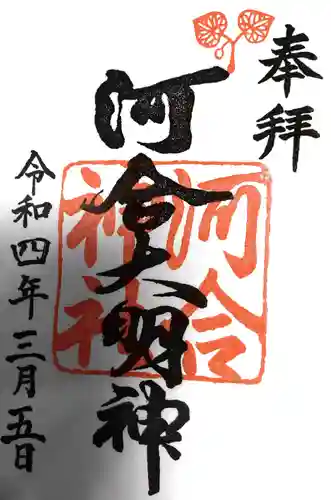 奉拝
河合大明神
河合神社
令和四年三月五日